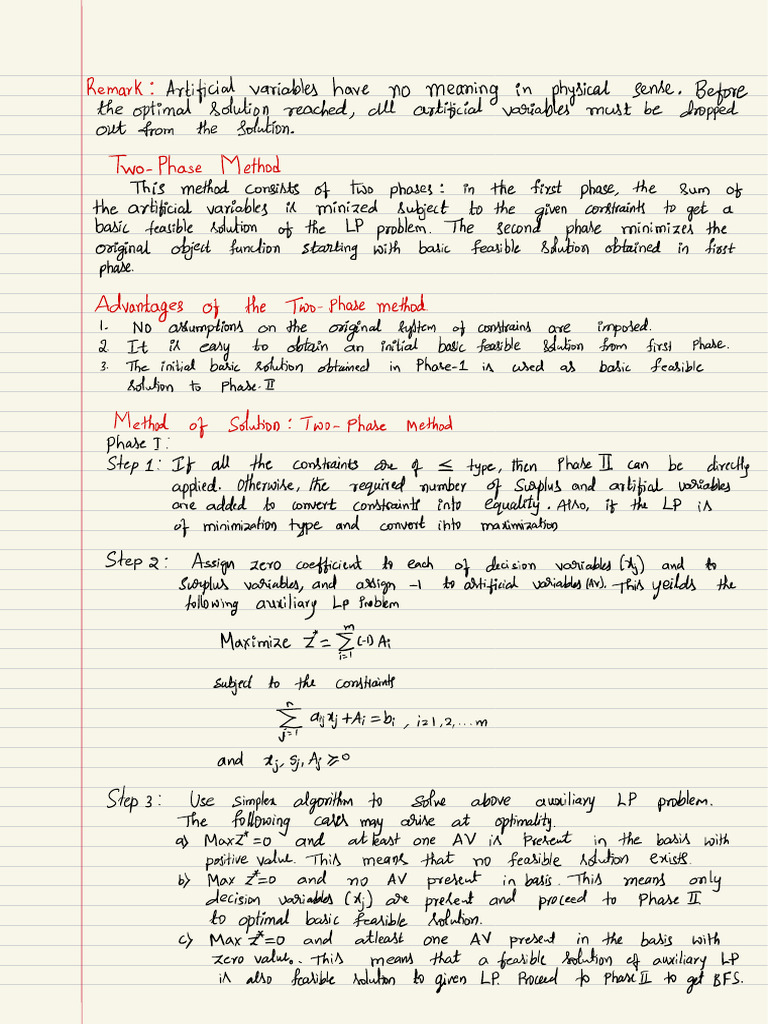 Remark: Artificial variables have no meaning in physical sense. Before
the optimal solution reached, all artificial variables must be dropped
out from the solution.
Two-Phase Method
This method consists of two phases: in the first phase, the sum of
the artificial variables is minized subject to the given constraints to get a
basic feasible solution of the LP problem. The second phase minimizes the
original object function starting with basic feasible solution obtained in first
phase.
Advantages of the Two-Phase method
1. No assumptions on the original system of constrains are imposed.
2. It is easy to obtain an initial basic feasible solution from first Phase.
3. The initial basic solution obtained in Phase-1 is used as basic feasible
solution to Phase-II
Method of Solution: Two-Phase Method
Phase I:
Step 1: If all the constraints are of ≤ type, then Phase II can be directly
applied. Otherwise, the required number of Surplus and artifial variables
are added to convert constraints into equality. Also, if the LP is
of minimization type and convert into maximization
Step 2: Assign zero coefficient to each of decision variables (xj) and to
Surplus variables, and assign -1 to artificial variables (AV). This yeilds the
following auxiliary LP Problem
Maximize Z* = ∑_{i=1}^{m} (-1) Ai
subject to the constraints
∑_{j=1}^{n} aij xj + Ai = bi, i=1,2,...m
and xj, sj, Aj ≥ 0
Step 3: Use simplex algorithm to solve above auxiliary LP problem.
The following cases may arise at optimality.
a) Max Z* = 0 and at least one AV is Present in the basis with
positive value. This means that no feasible solution exists.
b) Max Z* = 0 and no AV present in basis. This means only
decision variables (xj) are present and proceed to Phase II
to optimal basic feasible solution.
c) Max Z* = 0 and atleast one AV present in the basis with
zero value. This means that a feasible solution of auxiliary LP
is also feasible solution to given LP. Proceed to Phase II to get BFS.